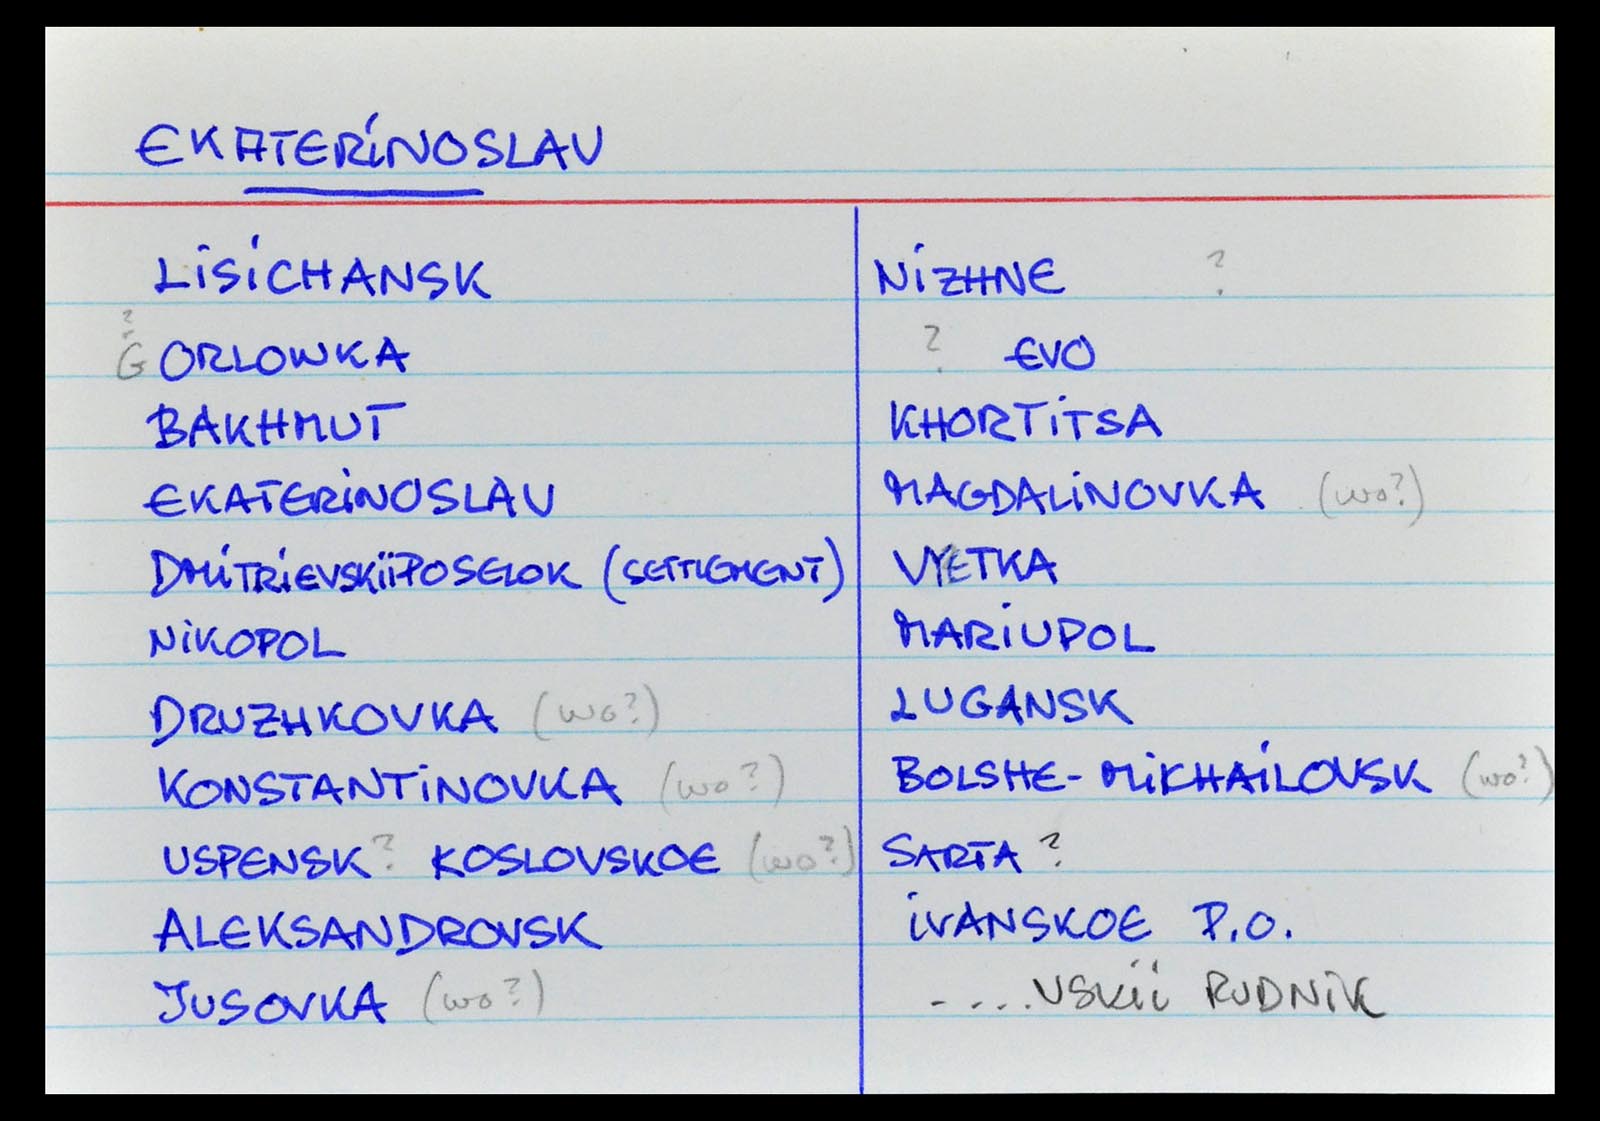 EKATERINOSLAV
LISICHANSK
? GORLOWKA
BAKHMUT
EKATERINOSLAV
DMITRIEVSKII POSELOK (SETTLEMENT)
NIKOPOL
DRUZHKOVKA (wo?)
KONSTANTINOVKA (wo?)
USPENSK? KOSLOVSKOE (wo?)
ALEKSANDROVSK
JUSOVKA (wo?)
NIZHNE ?
? EVO
KHORTITSA
MAGDALINOVKA (wo?)
VYETKA
MARIUPOL
LUGANSK
BOLSHE-MIKHAILOVSK (wo?)
SARTA ?
IVANSKOE P.O.
.....VSKII RUDNIK